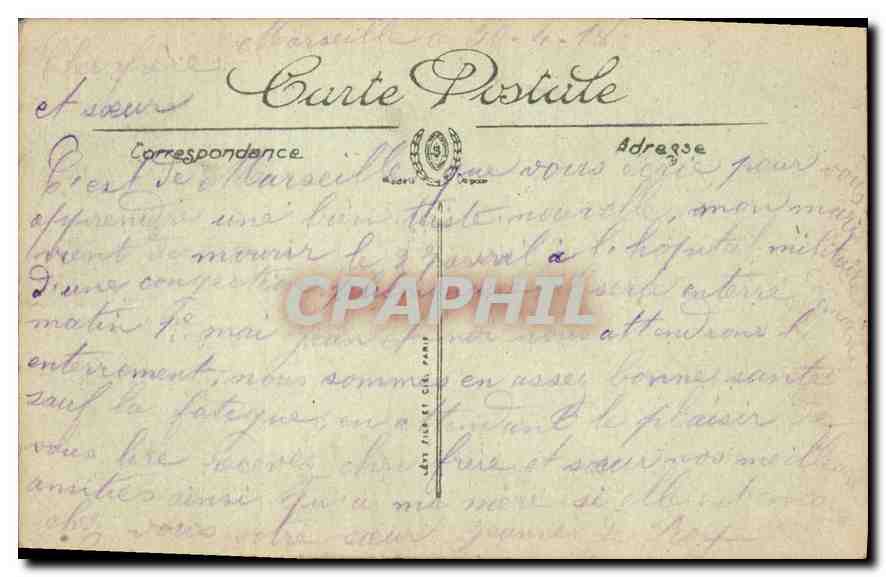 Marseille 30-4-18
Cher frère
et sœur
Carte Postale
Correspondance
Adresse
C'est de Marseille que vous écrie pour vous
apprendre une bien triste nouvelle, mon mari
vient de mourir le avril à l'hôpital militaire
d'une congestion sera enterré
matin 1e mai nous attendrons l'
enterrement, nous sommes en asse bonne santé
sauf la fatigue, en attendant le plaisir de
vous lire recevez cher frère et sœur nos meilleures
amitiés ainsi qu'a ma mère si elle est
chez vous votre sœur Jeanne
LÉVY FILS ET CIE, PARIS
CPAPHIL